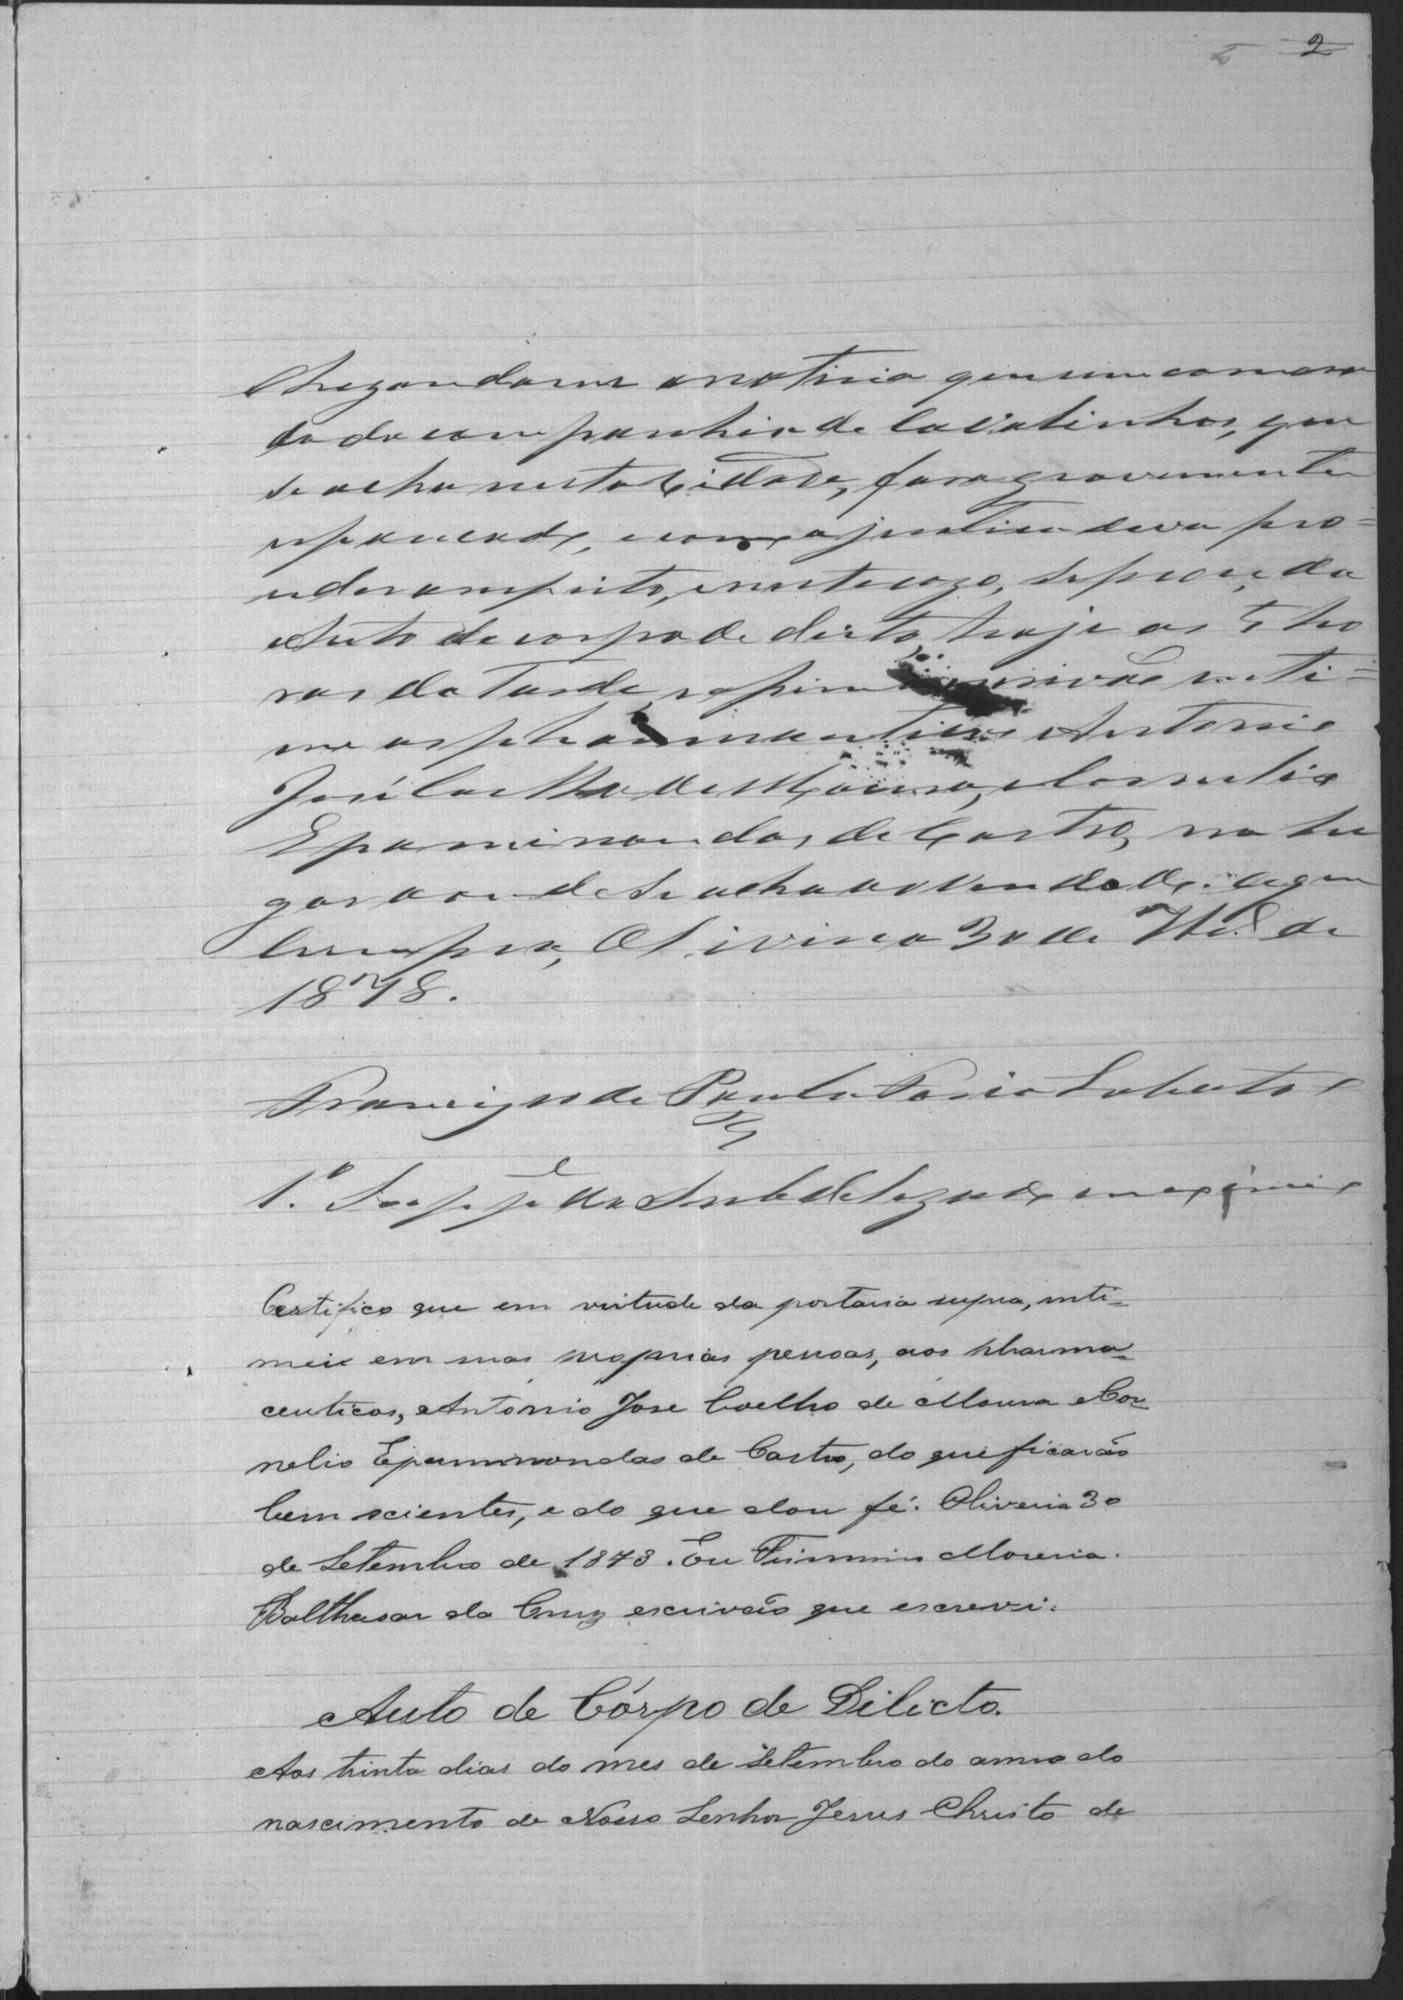 2
Chegandome a noticia que um camara
da da companhia de Cavalinhos, que
se acha nesta Cidade, fora gravemente
espancado, e como a justica deva pro=
ceder a respeito, e neste cazo, se proceda
Auto de corpo de dicto, hoje as 5 ho
ras da Tarde, escrivão inti=
me os pharmaceuticos Antonio
José Coelho de Moura, e Cornelio
Epaminondas de Castro, no lu
gar aonde se acha o offendido. O que
cumpra, Oliveira 30 de 7br.o de
1878.
Francisco de Paula Lobato
1.º Supp.e do Subdelegado em exercicio
Certifico que em virtude da portaria supra, inti=
mei em suas proprias pessoas, aos pharma=
ceuticos, Antonio Jose Coelho de Moura e Cor=
nelio Epaminondas de Castro, do que ficarão
bem scientes, e do que dou fé. Oliveria 30
de Setembro de 1878. Eu Firmino Moreria
Balthasar da Cruz escrivão que escrevi.
Auto de Córpo de Dilicto.
Aos trinta dias do mes de Setembro do anno do
nascimento de Nosso Senhor Jesus Christo de